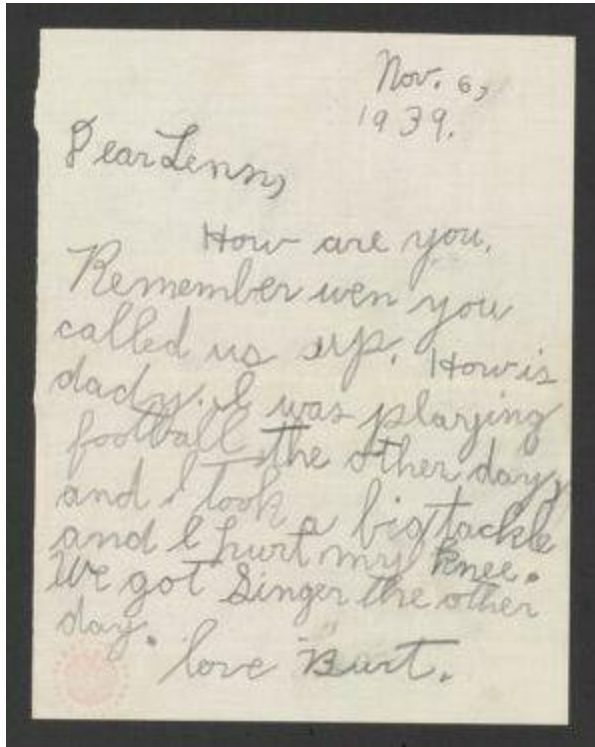 Nov. 6,
1939.
Dear Lenny,
How are you.
Remember wen you
called us up. How is
dady. I was playing
football the other day,
and I took a big tackle
and I hurt my knee.
We got Singer the other
day.
love Burt.